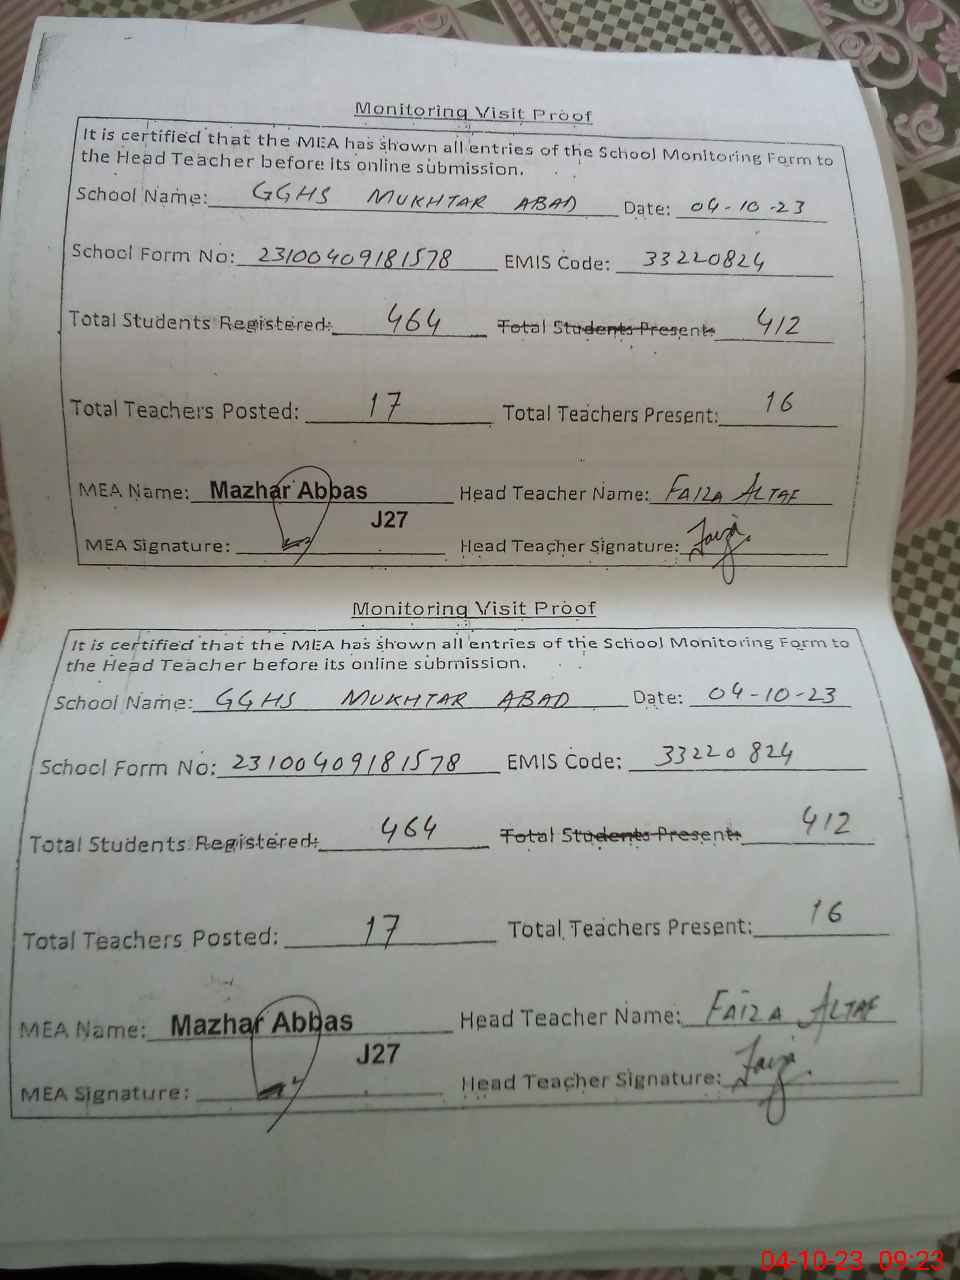 Monitoring Visit Proof
It is certified that the MEA has shown all entries of the School Monitoring Form to
the Head Teacher before its online submission.
School Name: GGHS MUKHTAR ABAD Date: 04-10-23
School Form No: 23100409181578 EMIS Code: 33220824
Total Students Registered: 464 Total Students Present: 412
Total Teachers Posted: 17 Total Teachers Present: 16
MEA Name: Mazhar Abbas Head Teacher Name: FAIZA ALTAF
J27
MEA Signature: Head Teacher Signature: Faiza
Monitoring Visit Proof
It is certified that the MEA has shown all entries of the School Monitoring Form to
the Head Teacher before its online submission.
School Name: GGHS MUKHTAR ABAD Date: 04-10-23
School Form No: 23100409181578 EMIS Code: 33220824
Total Students Registered: 464 Total Students Present: 412
Total Teachers Posted: 17 Total Teachers Present: 16
MEA Name: Mazhar Abbas Head Teacher Name: FAIZA ALTAF
J27
MEA Signature: Head Teacher Signature: Faiza
04-10-23 09:23